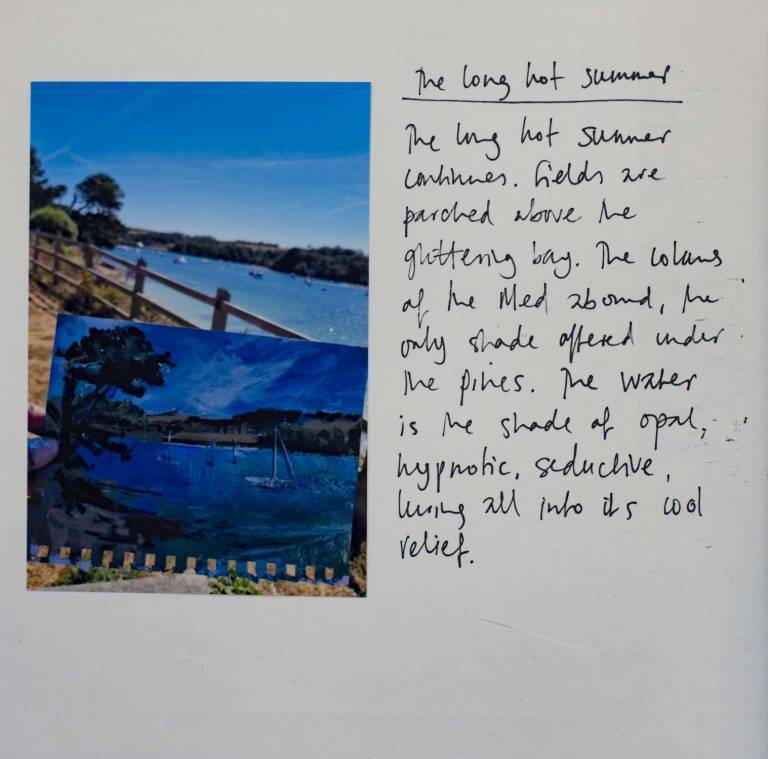 The long hot summer
The long hot summer
continues. Fields are
parched above the
glittering bay. The colours
of the Med abound, the
only shade offered under
the pines. The water
is the shade of opal,
hypnotic, seductive,
luring all into its cool
relief.